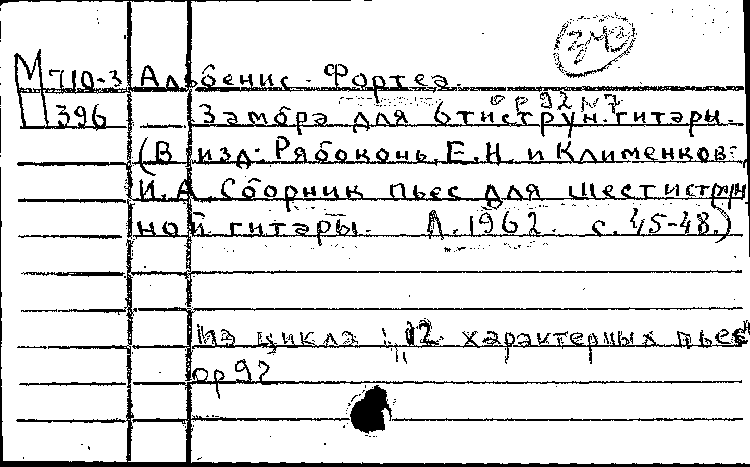 М 710-3 Альбенис - Фортеа.
ор 92 N 7
П 396 Замбра для 6тиструн. гитары.
(В изд: Рябоконь, Е.Н. и Клименков
И.А. Сборник пьес для шестиструн
ной гитары. Л. 1962. с. 45-48.)
Из цикла „12 характерных пьес"
ор 92